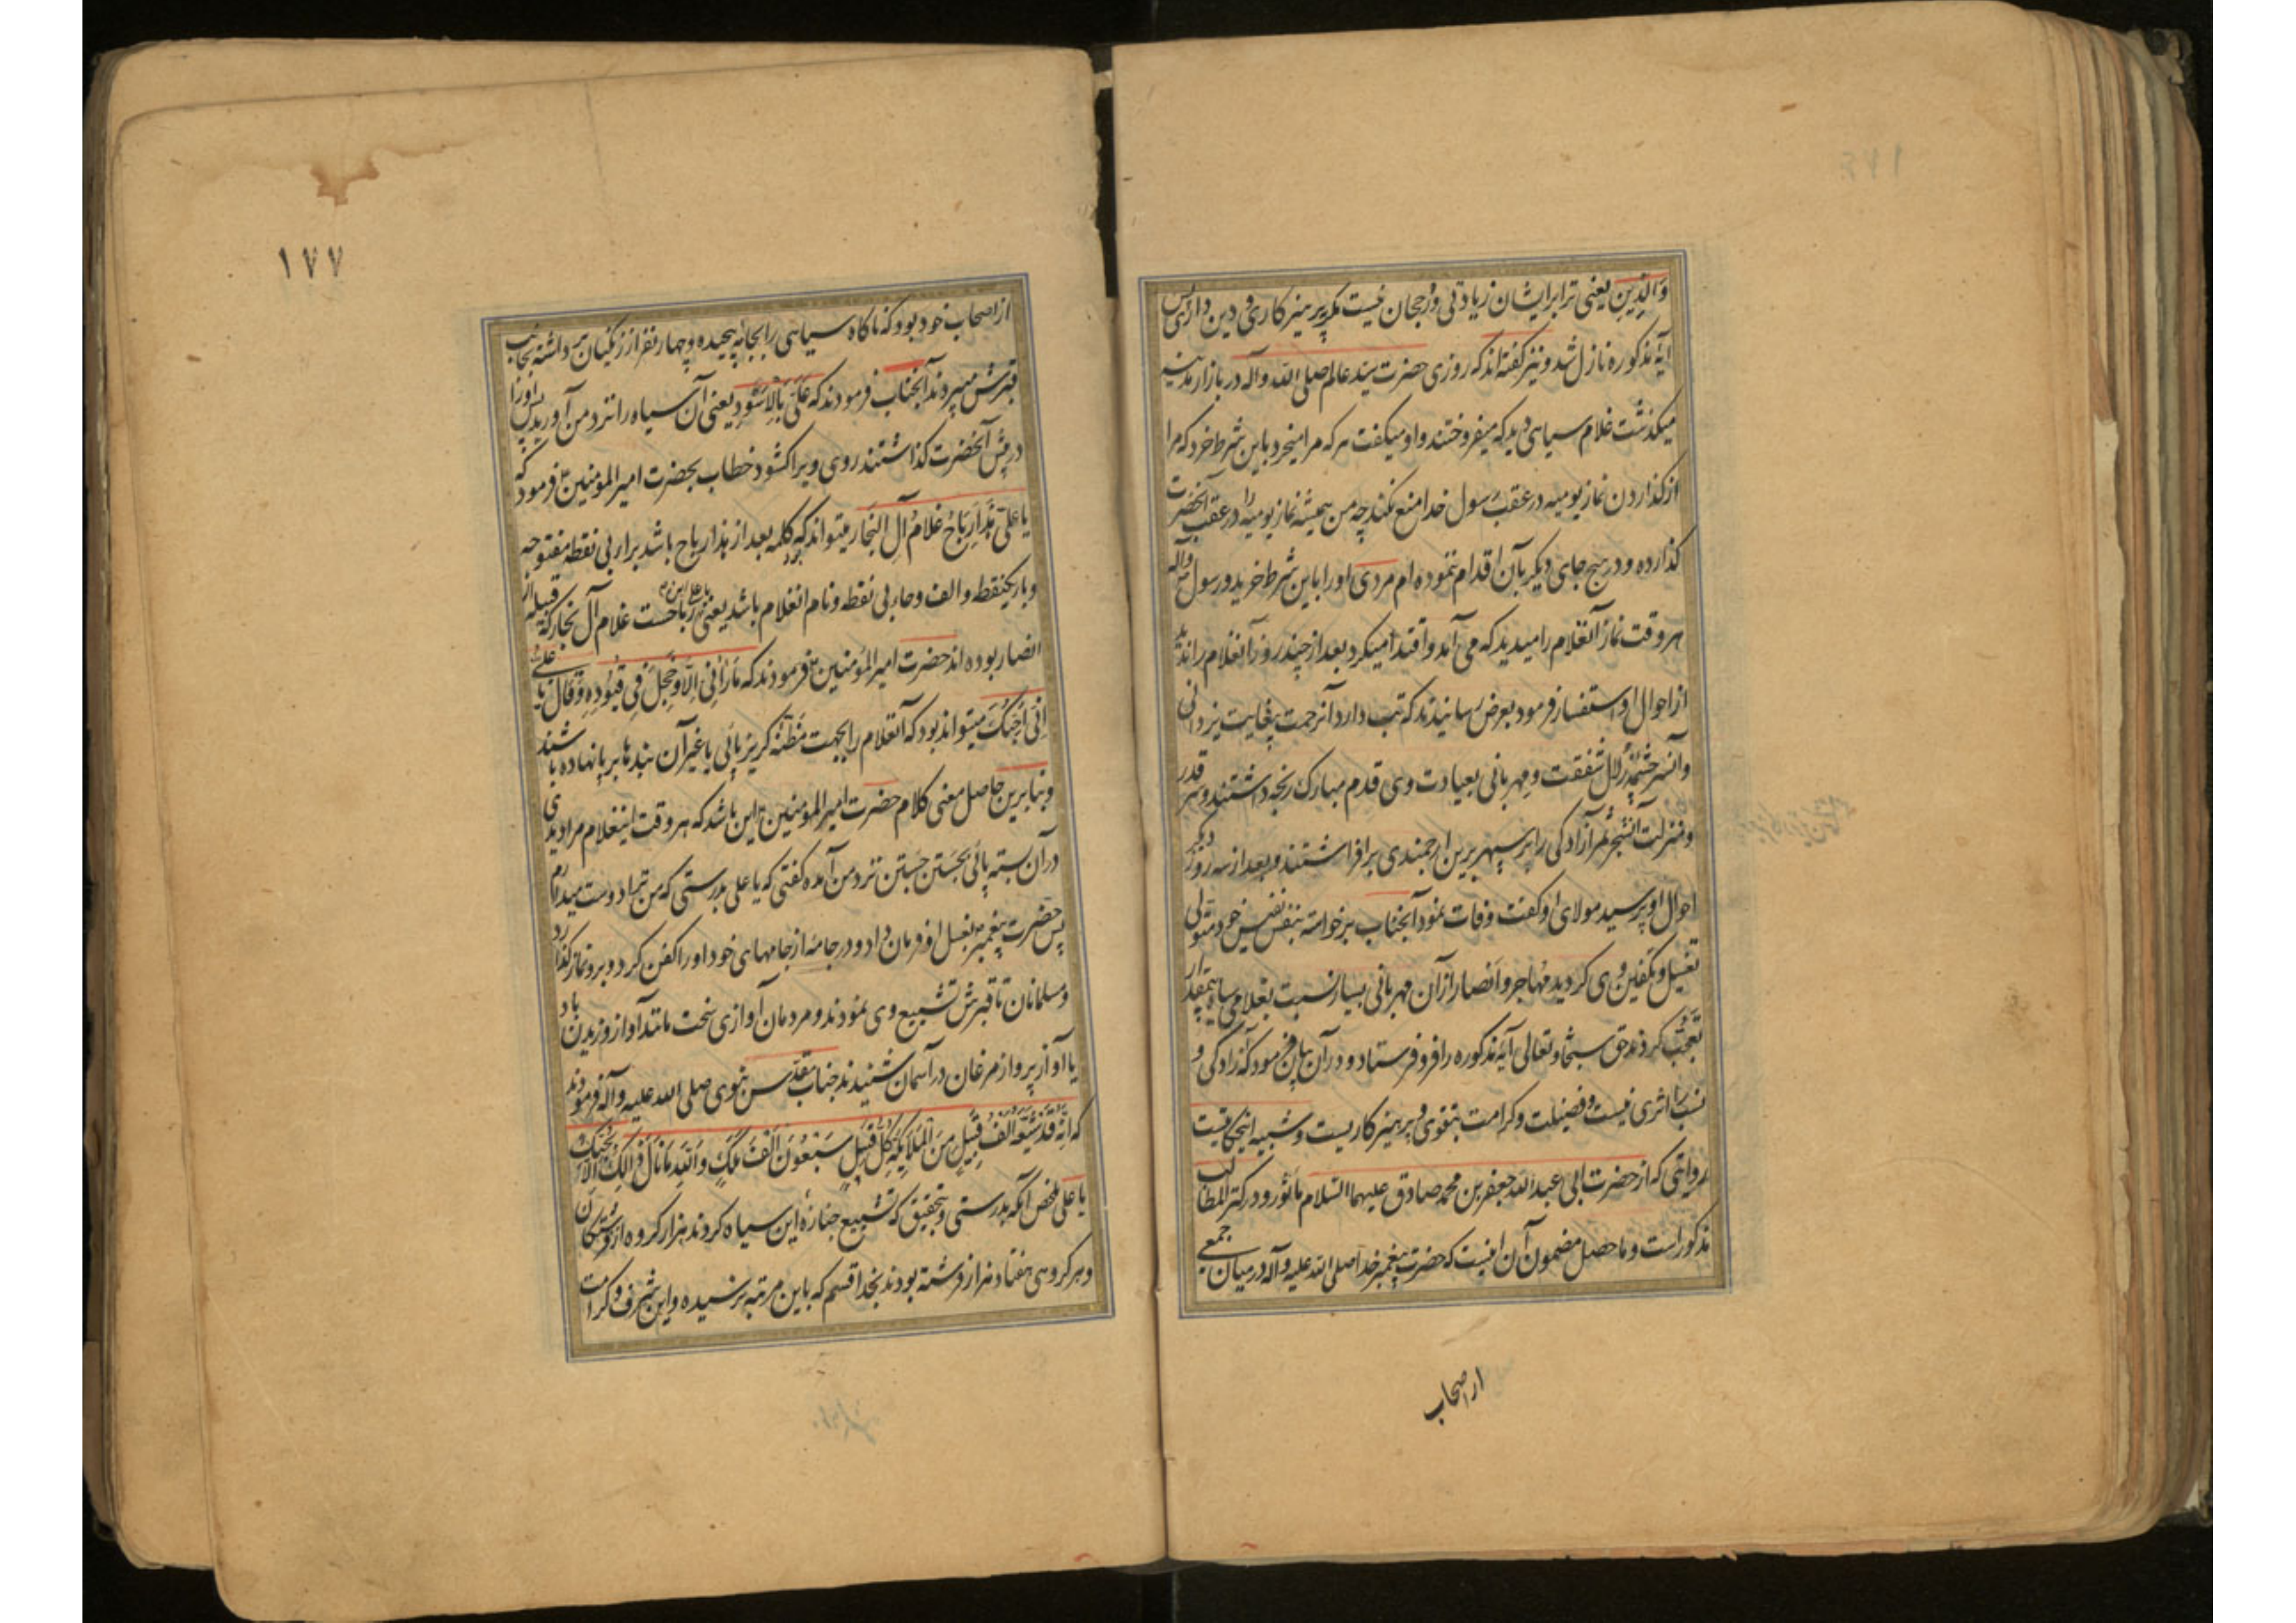 والدین یعنی ترا برایشان زیادتی و رجحان نیست مگر بپرهیزکاری و دین داری پس
آیهٔ مذکوره نازل شد و نیز گفته‌اند که روزی حضرت سید عالم صلی الله و آله در بازار مدینه
میکذشت غلام سیاهی دید که میفروختند و او میکفت هر که مرا میخرد باین شرط خرد که مرا
از کذاردن نماز یومیه در عقب رسول خدا منع نکند چه من همیشه نماز یومیه را در عقب آنحضرت
کذارده و در هیچ جای دیکر بآن اقدام ننموده‌ام مردی او را باین شرط خرید و رسول ص و آله
هر وقت نماز آنغلام را میدید که می آمد و اقتدا میکرد بعد از چند روز آنغلام را ندید
از احوال او استفسار فرمود بعرض رسانیدند که تب دارد آنرحمت بیغایت یزدانی
و آنسرچشمهٔ زلال شفقت و مهربانی بعیادت وی قدم مبارک رنجه داشتند و سر قدر
و منزلت آنشجر ثمر آزادکی را بر سپهر برین ارجمندی برافراشتند و بعد از سه روز دیکر
احوال او پرسید مولای او کفت وفات نمود آنجناب برخواسته بنفس نفیس خود متولی
تغسیل و تکفین وی کردید مهاجر و انصار از آن مهربانی بسیار نسبت بغلامی سیاه بیمقدار
تعجب کردند حق سبحانه و تعالی آیهٔ مذکوره را فرو فرستاد و در آن بیان فرمود که آزادکی و
نسب را اثری نیست و فضیلت و کرامت بتقوی و پرهیزکاریست و شبیه اینحکایت
روایتی که از حضرت ابی عبدالله جعفر بن محمد صادق علیهما السلام مأثور و در کنز المطالب
مذکور است و ماحصل مضمون آن اینست که حضرت پیغمبر خدا صلی الله علیه و آله در میان جمعی
از اصحاب
١٧٧
از اصحاب خود بود که ناکاه سیاهی را بجامه پیچیده و چهار نفر از زنکیان برداشته بجانب
قبرش میبردند آنجناب فرمودند که علی بالاسود یعنی آن سیاه را نزد من آورید پس او را
در پیش آنحضرت کذاشتند روی ویرا کشود خطاب بحضرت امیر المومنین ع فرمود که
یا علی هذا رباح غلام آل النجار میتواند که کلمه بعد از هذا رباح باشد برار بی نقطه مفتوحه
و بار یکنقطه و الف و حاء بی نقطه و نام آنغلام باشد یعنی یا علی این رباحست غلام آل نجار که قبیله از
انصار بوده‌اند حضرت امیر المؤمنین ع فرمودند که ما رآنی الا و حجل فی قیوده و قال یا علی
انی احبک میتواند بود که آنغلام را بجهت مظنه کریزپائی یا غیر آن بندها بر پا نهاده باشند
و بنابرین حاصل معنی کلام حضرت امیر المومنین ع این باشد که هر وقت اینغلام مرا دیدی
در آن بسته پائی بجستن جستن نزد من آمده کفتی که یا علی بدرستی که من ترا دوست میدارم
پس حضرت پیغمبر بغسل او فرمان داد و در جامهٔ از جامهای خود او را کفن کرد و برو نماز کذارد
و مسلمانان تا قبرش تشییع وی نمودند و مردمان آوازی سخت مانند آواز وزیدن باد
یا آواز پرواز مرغان در آسمان شنیدند جناب مقدس نبوی صلی الله علیه و آله فرمودند
که انه قد شیعه الف قبیل من الملائکه کل قبیل سبعون الف ملک والله ما نال ذالک الا بحبک
یا علی ملخص آنکه بدرستی و تحقیق که تشییع جنازهٔ این سیاه کردند هزار کروه از فرشتکان
و هر کروهی هفتاد هزار فرشته بودند بخدا قسم که باین مرتبه نرسیده و این شرف و کرامت